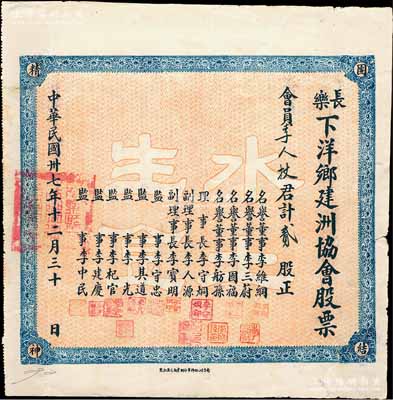 團
結
精
神
長樂
下洋鄉建洲協會股票
會員李人杖君計貳股正
名譽董事李維綱
名譽董事李三尉
名譽董事李國福
名譽董事李舫孫
理事長李守炯
副理事長李人源
副理事長李寶明
監事李守忠
監事李其道
監事李光
監事李杞官
監事李建慶
監事李中民
中華民國卅七年十二月三十日
生水